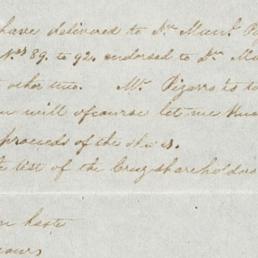 have delivered to Dn. Manl. Pi
Nos 89. to 92. endorsed to Dn. M
other two. Mr. Pizarro is to
will of course let me kno
proceeds of the
list of the Cruz shareholders
in haste
Yours